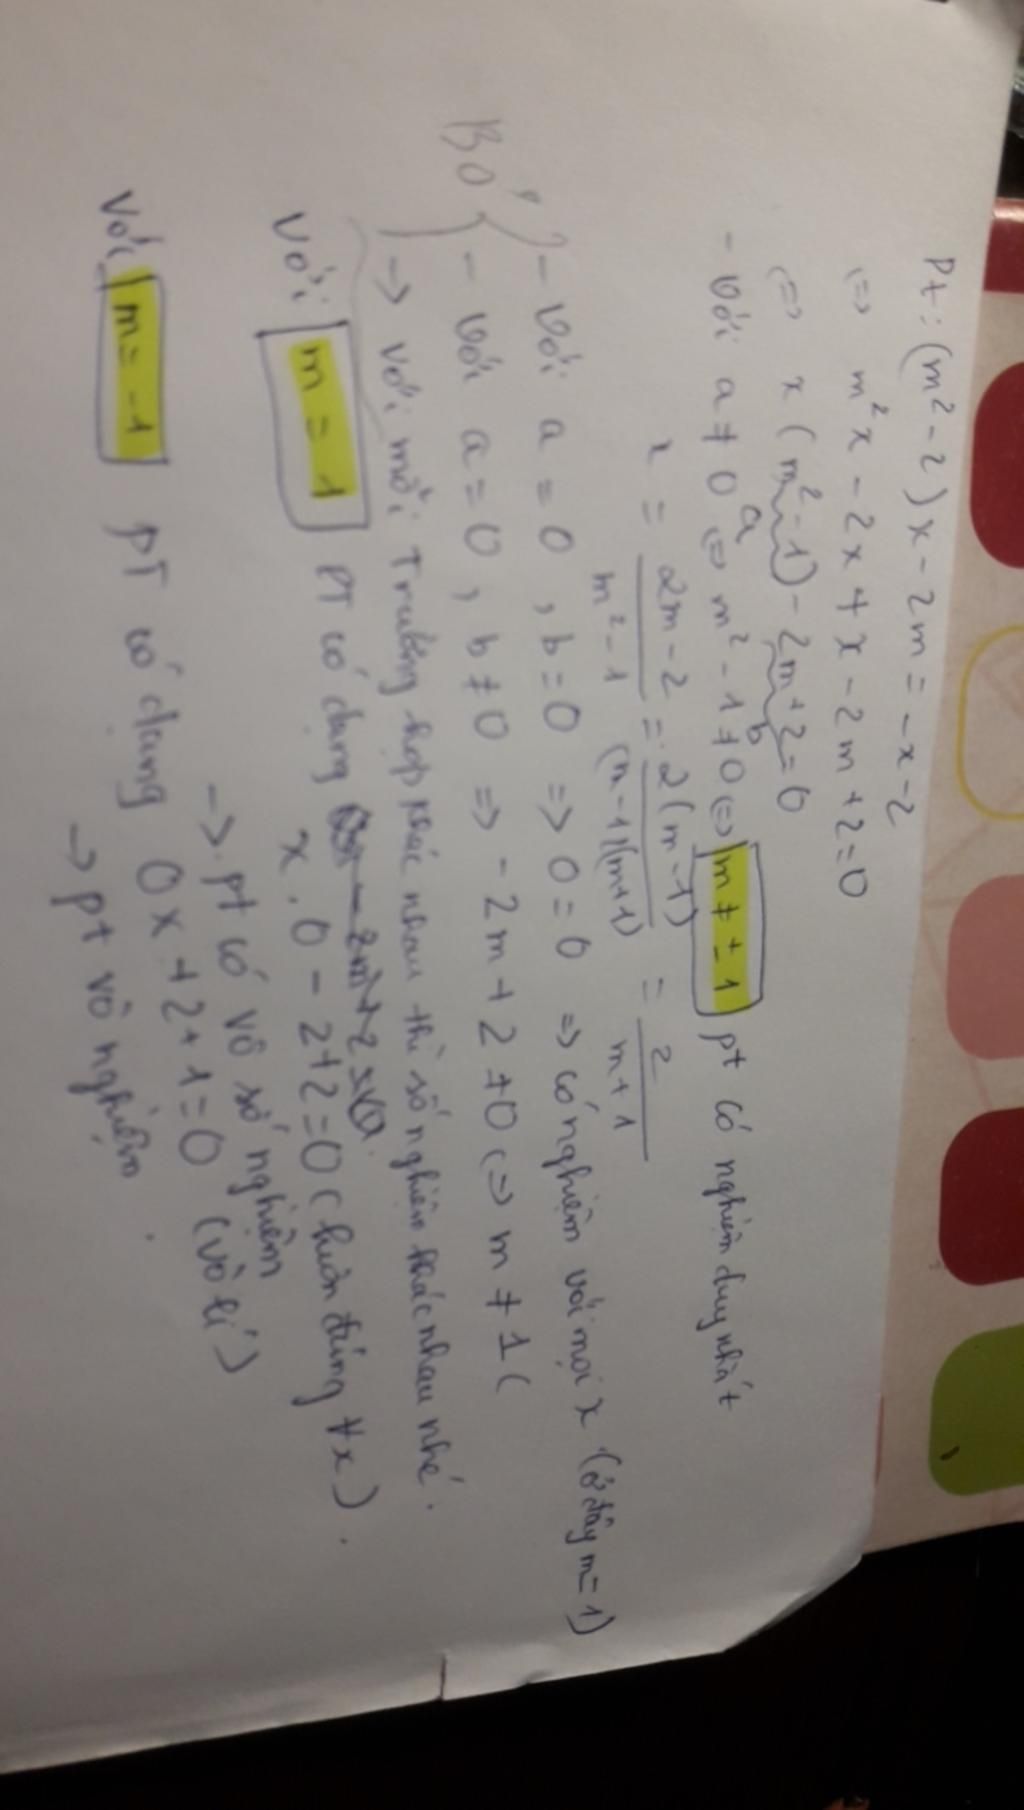 Pt: (m² - 2)x - 2m = -x - 2
(=) m²x - 2x + x - 2m + 2 = 0
(=) x(m² - 1) - 2m + 2 = 0
a b
- Với a ≠ 0 (=) m² - 1 ≠ 0 (=) m ≠ ± 1 pt có nghiệm duy nhất
x = \frac{2m - 2}{m² - 1} = \frac{2(m - 1)}{(m - 1)(m + 1)} = \frac{2}{m + 1}
- Với a = 0, b = 0 => 0 = 0 => có nghiệm với mọi x (ở đây m = 1)
Bỏ - Với a = 0, b ≠ 0 => -2m + 2 ≠ 0 (=) m ≠ 1 (
→ Với mỗi Trường hợp khác nhau thì số nghiệm khác nhau nhé.
Với m = 1 PT có dạng
x . 0 - 2 + 2 = 0 (luôn đúng ∀x).
→ pt có vô số nghiệm
Với m = -1 PT có dạng 0x + 2 + 1 = 0 (vô lí)
→ pt vô nghiệm.